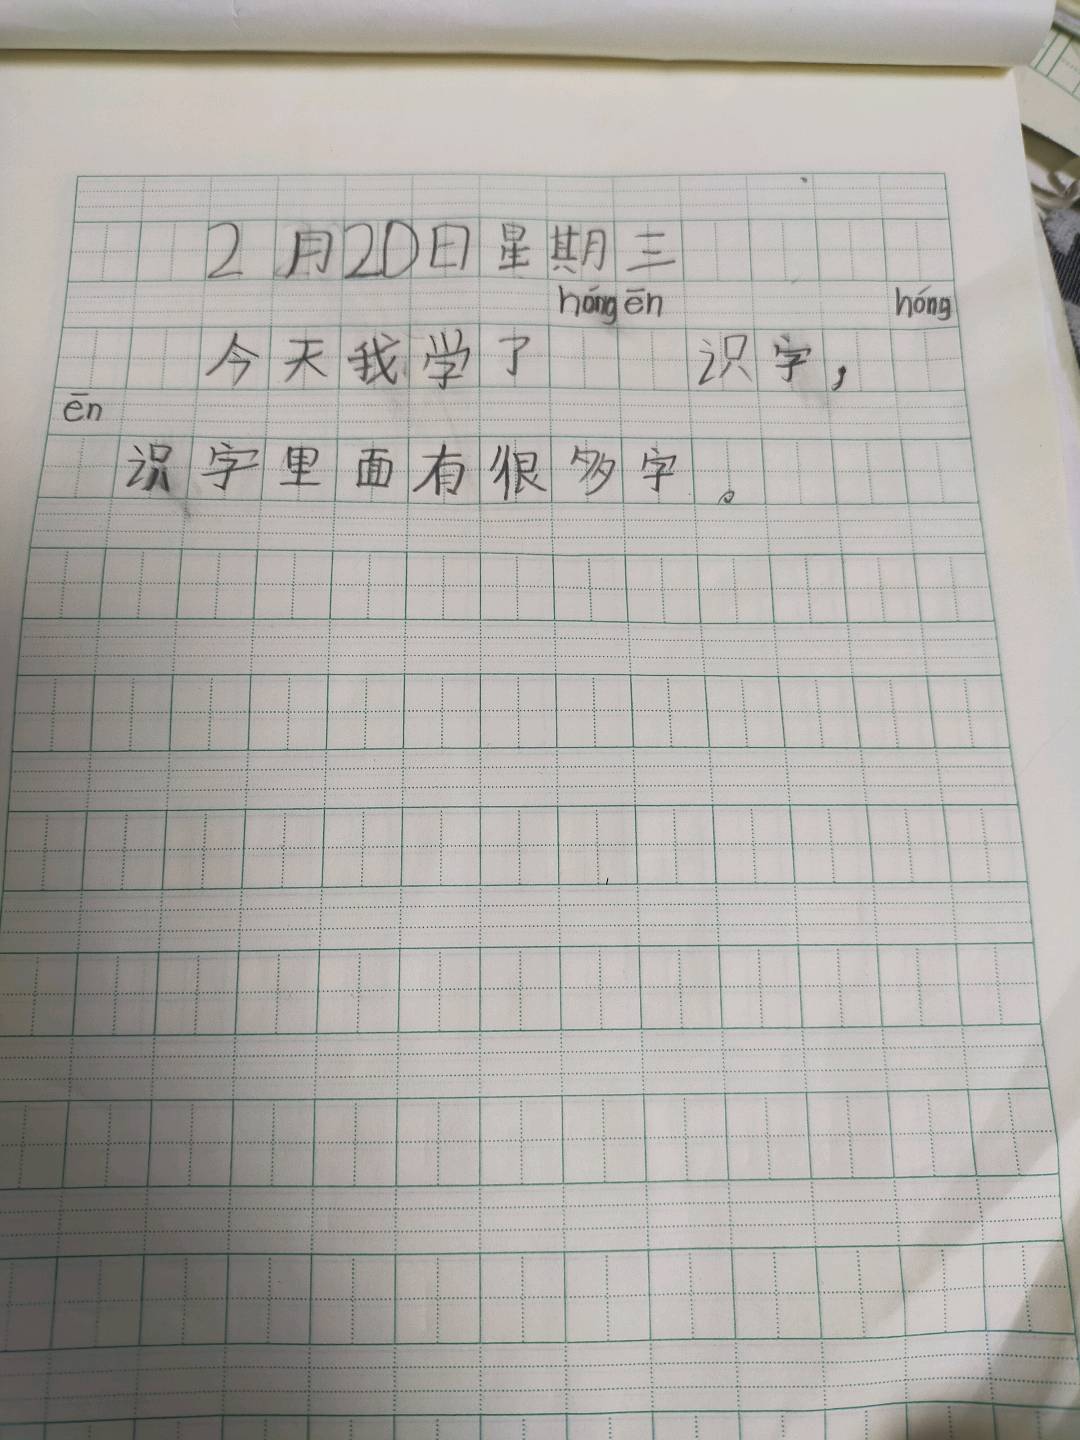 2月20日星期三
hóng ēn hóng
今天我学了 识字，
ēn
识字里面有很多字。